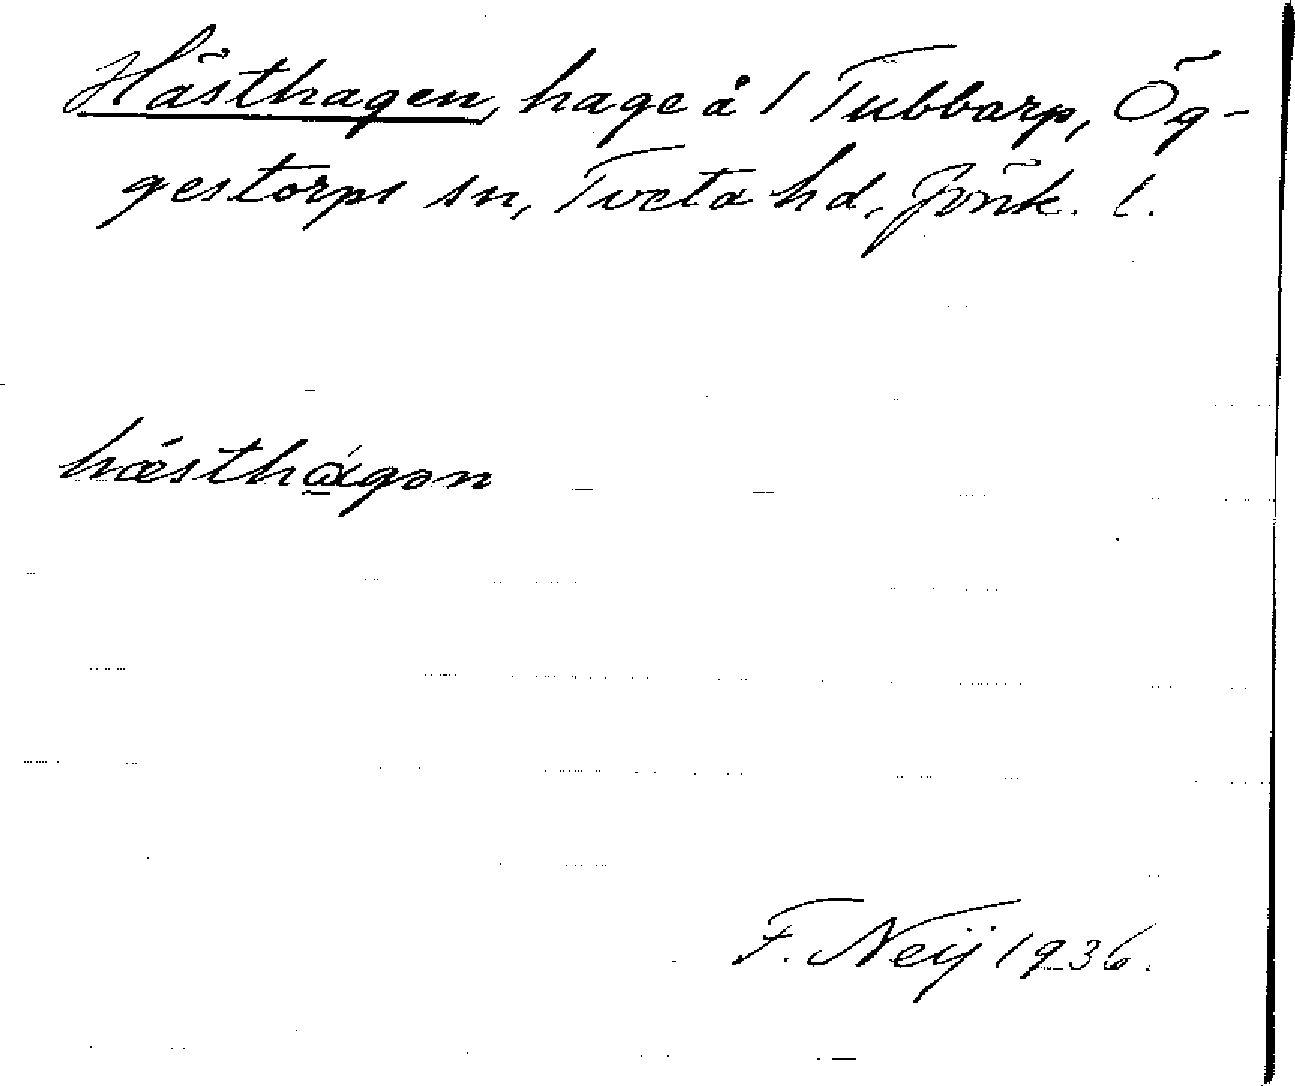 Hästhagen, hage å 1 Tubbarp, Ög-
gestorps sn, Tveta hd, Jönk. l.
hǽsthɑ̀gən
F. Neij 1936.